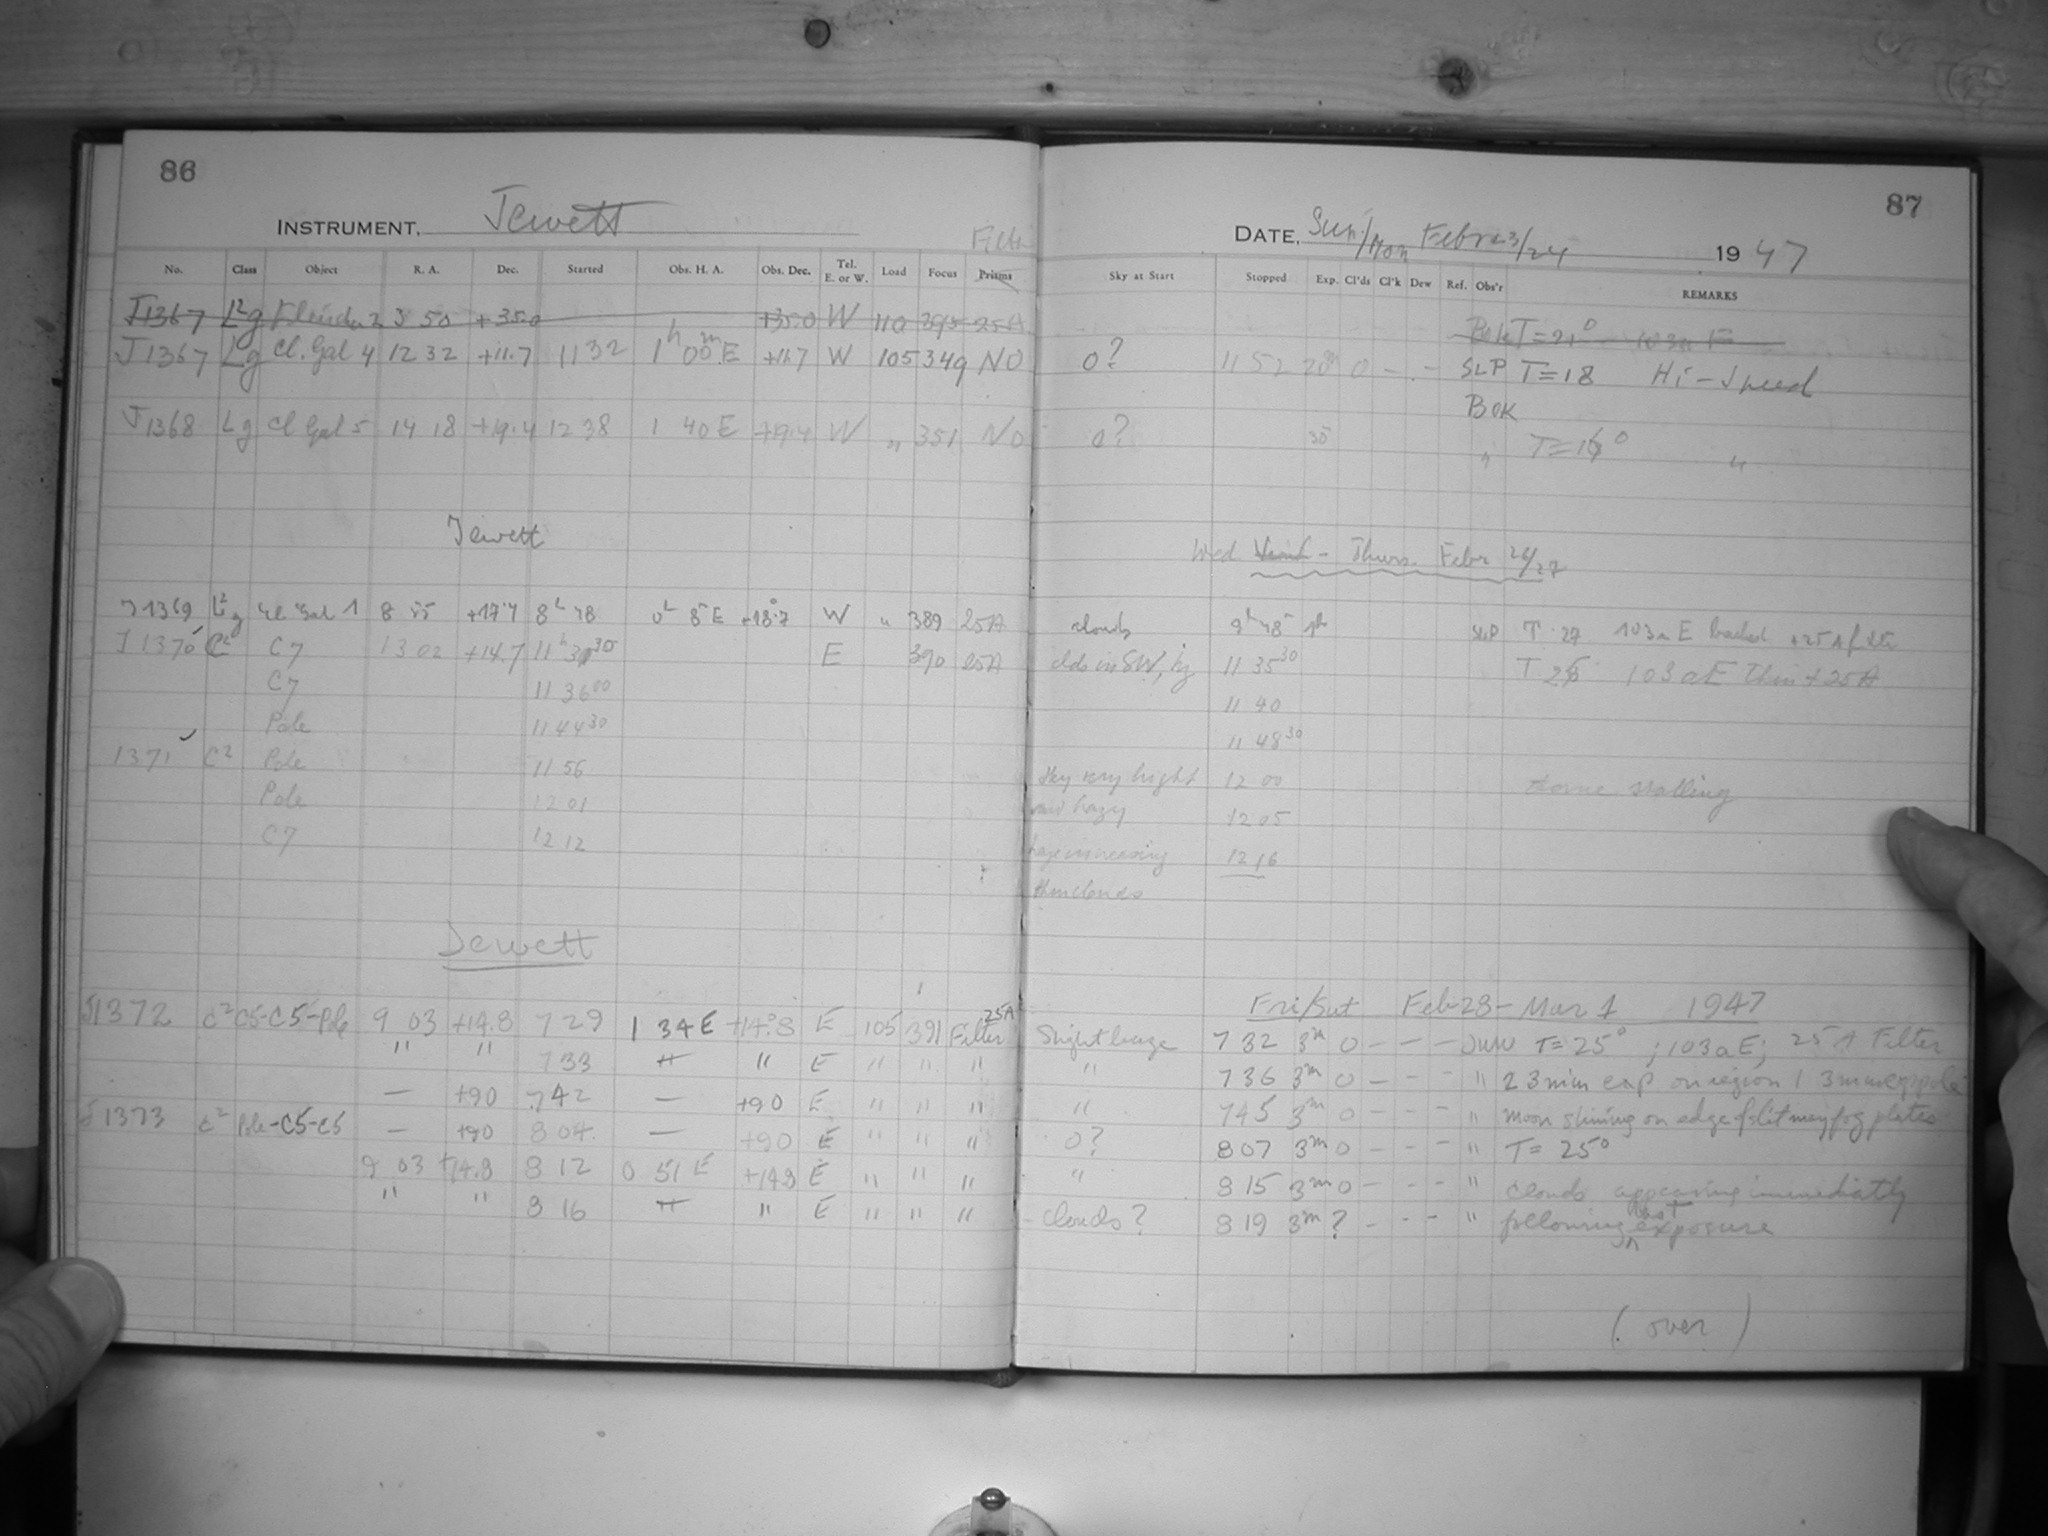 86
INSTRUMENT, Jewett
Filter
No. Class Object R. A. Dec. Started Obs. H. A. Obs. Dec. Tel. E. or W. Load Focus Prisms
J1367 L²g 3 50 +35.0 +35.0 W 110 395 25A
J1367 Lg Cl. Gal 4 12 32 +11.7 11 32 1h 00m E +11.7 W 105 349 NO
J1368 Lg Cl Gal 5 14 18 +19.4 12 38 1 40 E +19.4 W " 351 NO
Jewett
J1369 L²g Cl Gal 1 8 55 +17.7 8h 48 0h 8m E +18°.7 W " 389 25A
J1370 C² C7 13 02 +14.7 11h 31 30 E 390 25A
C7 11 36 00
Pole 11 44 30
1371 C² Pole 11 56
Pole 12 01
C7 12 12
Jewett
J1372 C² C5-C5-Pole 9 03 +14.8 7 29 1 34 E +14°.8 E 105 391 Filter 25A
" " 7 33 " E " " "
— +90 7 42 — +90 E " " "
J1373 C² Pole-C5-C5 — +90 8 04 — +90 E " " "
9 03 +14.8 8 12 0 51 E +14.8 E " " "
" " 8 16 " E " " "
87
DATE, Sun/Mon Febr 23/24 1947
Sky at Start Stopped Exp. Cl'ds Cl'k Dew Ref. Obs'r REMARKS
Bok T=21° 103a E
0? 11 52 20m 0 - - - SLP T=18 Hi-Speed
BOK
0? 35 " T=16° "
Wed - Thurs. Febr 26/27
clouds 9h 48m 1h SLP T 27 103a E backed +25A filter
clds in SW, hzy 11 35 30 T 25 103aE Thin + 25A
11 40
11 48 30
Sky very bright 12 00 some stalling
and hazy 12 05
haze increasing 12 16
thin clouds
Fri/Sat Feb 28 - Mar 1 1947
Slight haze 7 32 3m 0 - - - T=25° ; 103aE; 25A Filter
" 7 36 3m 0 - - - " 2 3 min exp on region 1 3m on pole
" 7 45 3m 0 - - - " moon shining on edge of slit may fog plates
0? 8 07 3m 0 - - - " T= 25°
" 8 15 3m 0 - - - " clouds appearing immediately
- clouds? 8 19 3m ? - - - " following last exposure
(over)